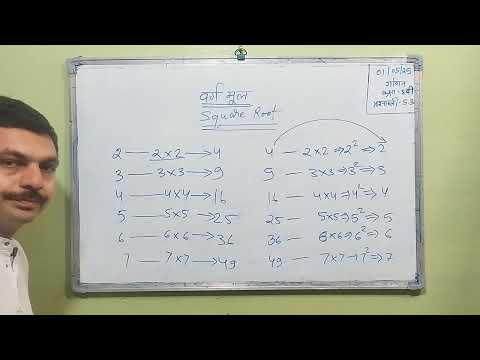 वर्ग मूल
Square Root
01/05/25
गणित
2 — 2×2 → 4
3 — 3×3 → 9
4 — 4×4 → 16
5 — 5×5 → 25
6 — 6×6 → 36
7 — 7×7 → 49
4 — 2×2 ⇒ 2² ⇒ 2
9 — 3×3 ⇒ 3² ⇒ 3
16 — 4×4 ⇒ 4² ⇒ 4
25 — 5×5 ⇒ 5² ⇒ 5
36 — 6×6 ⇒ 6² ⇒ 6
49 — 7×7 → 7² ⇒ 7